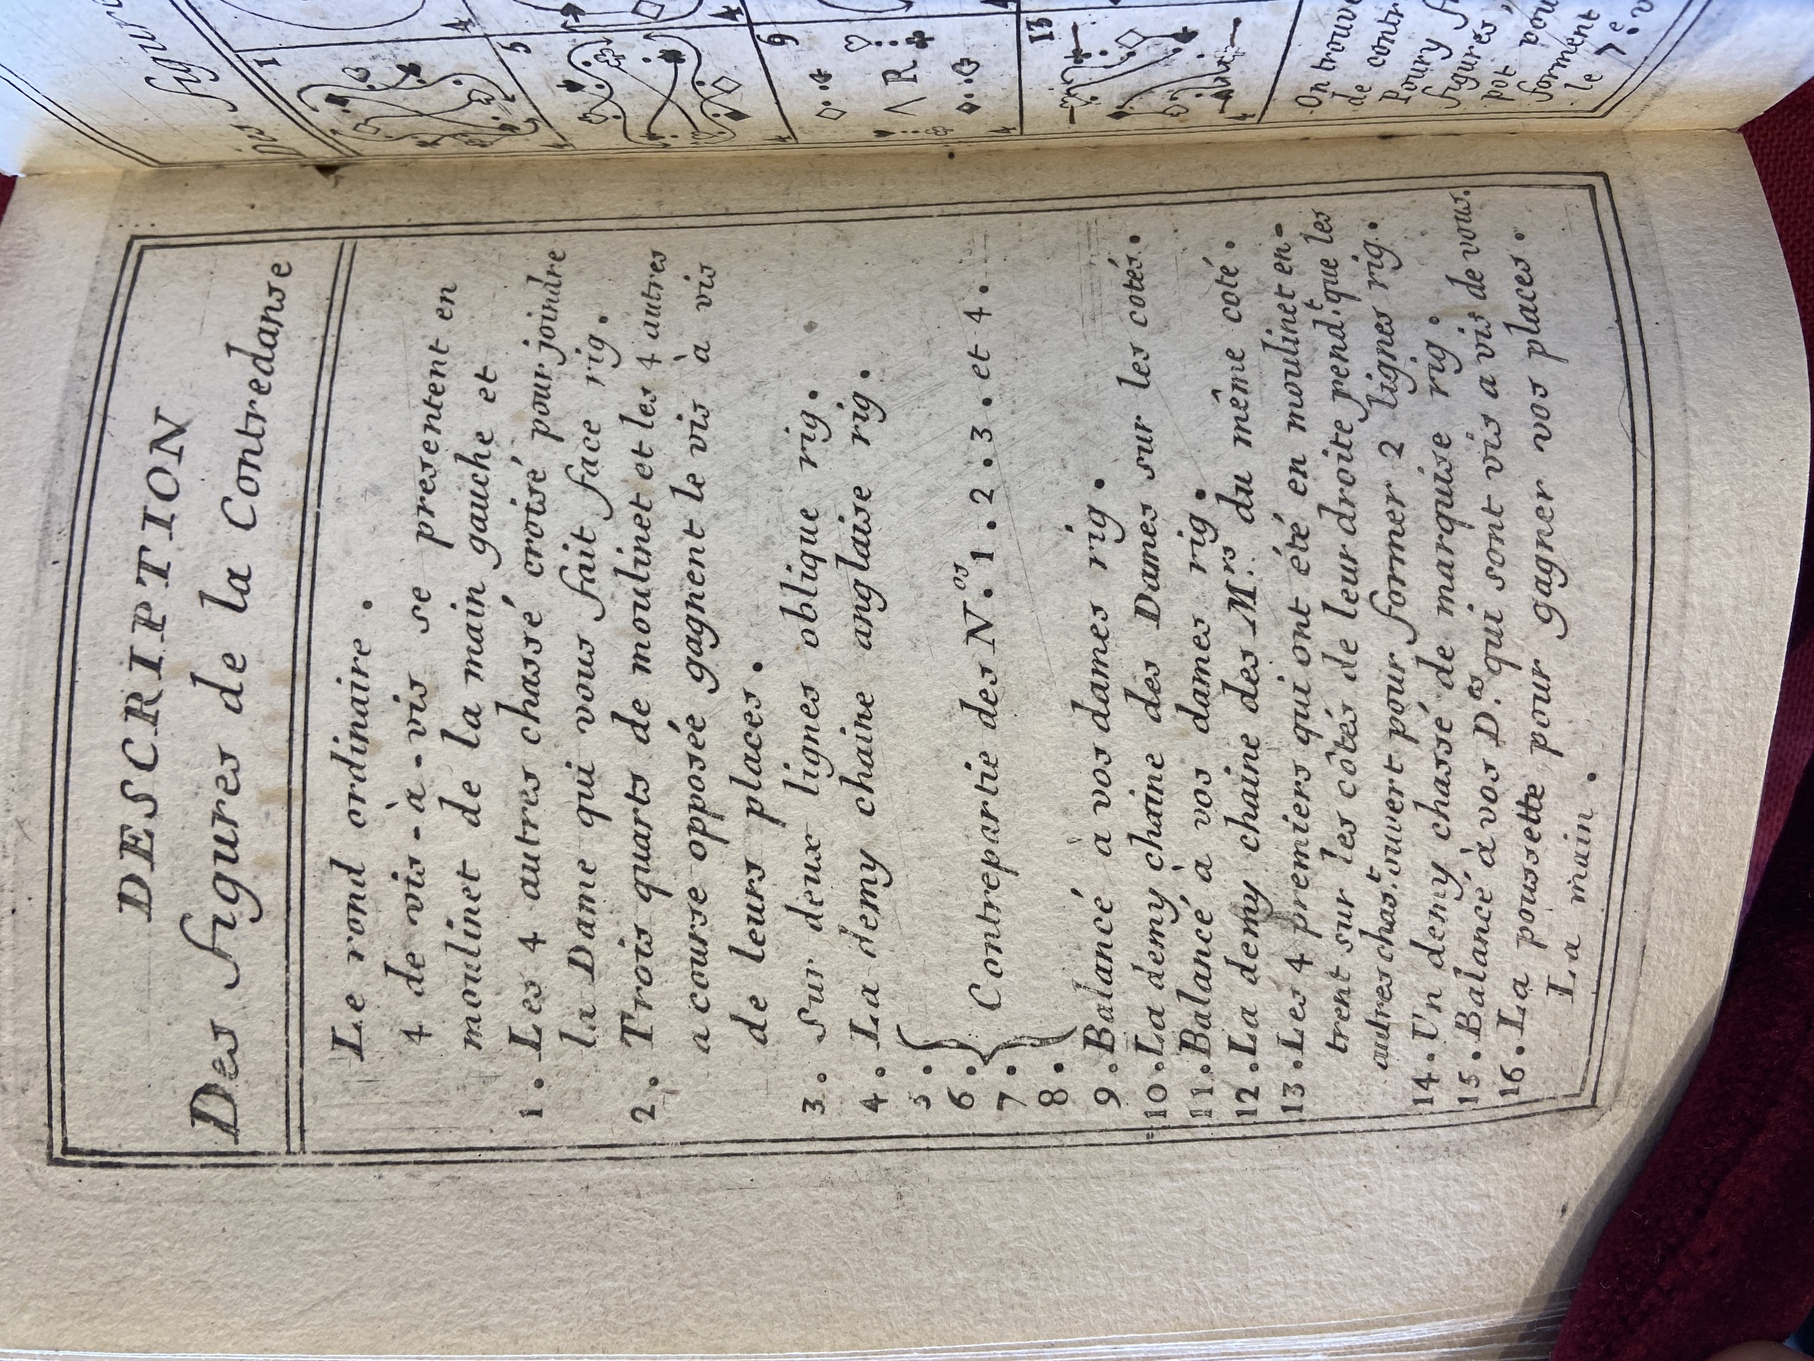 DESCRIPTION
Des figures de la Contredanse
Le rond ordinaire .
4 de vis-à-vis se presentent en
moulinet de la main gauche et
1. Les 4 autres chassé croisé pour joindre
la Dame qui vous fait face rig.
2. Trois quarts de moulinet et les 4 autres
a course opposée gagnent le vis à vis
de leurs places .
3. Sur deux lignes oblique rig.
4. La demy chaine anglaise rig.
5.
6.
Contrepartie des N.os 1. 2. 3. et 4.
7.
8.
9. Balancé à vos dames rig.
10. La demy chaine des Dames sur les cotés.
11. Balancé à vos dames rig.
12. La demy chaine des M.rs du même coté.
13. Les 4 premiers qui ont été en moulinet en-
trent sur les côtés de leur droite pend.t que les
autres chas.t ouvert pour former 2 lignes rig.
14. Un demy chassé de marquise rig.
15. Balancé à vos D.es qui sont vis a vis de vous.
16. La poussette pour gagner vos places.
La main .
Des figure
1
4
5
4
9
Λ R
4
13
4
On trouve
de contr
Poury
figures,
pot pou
forment
le 7e.